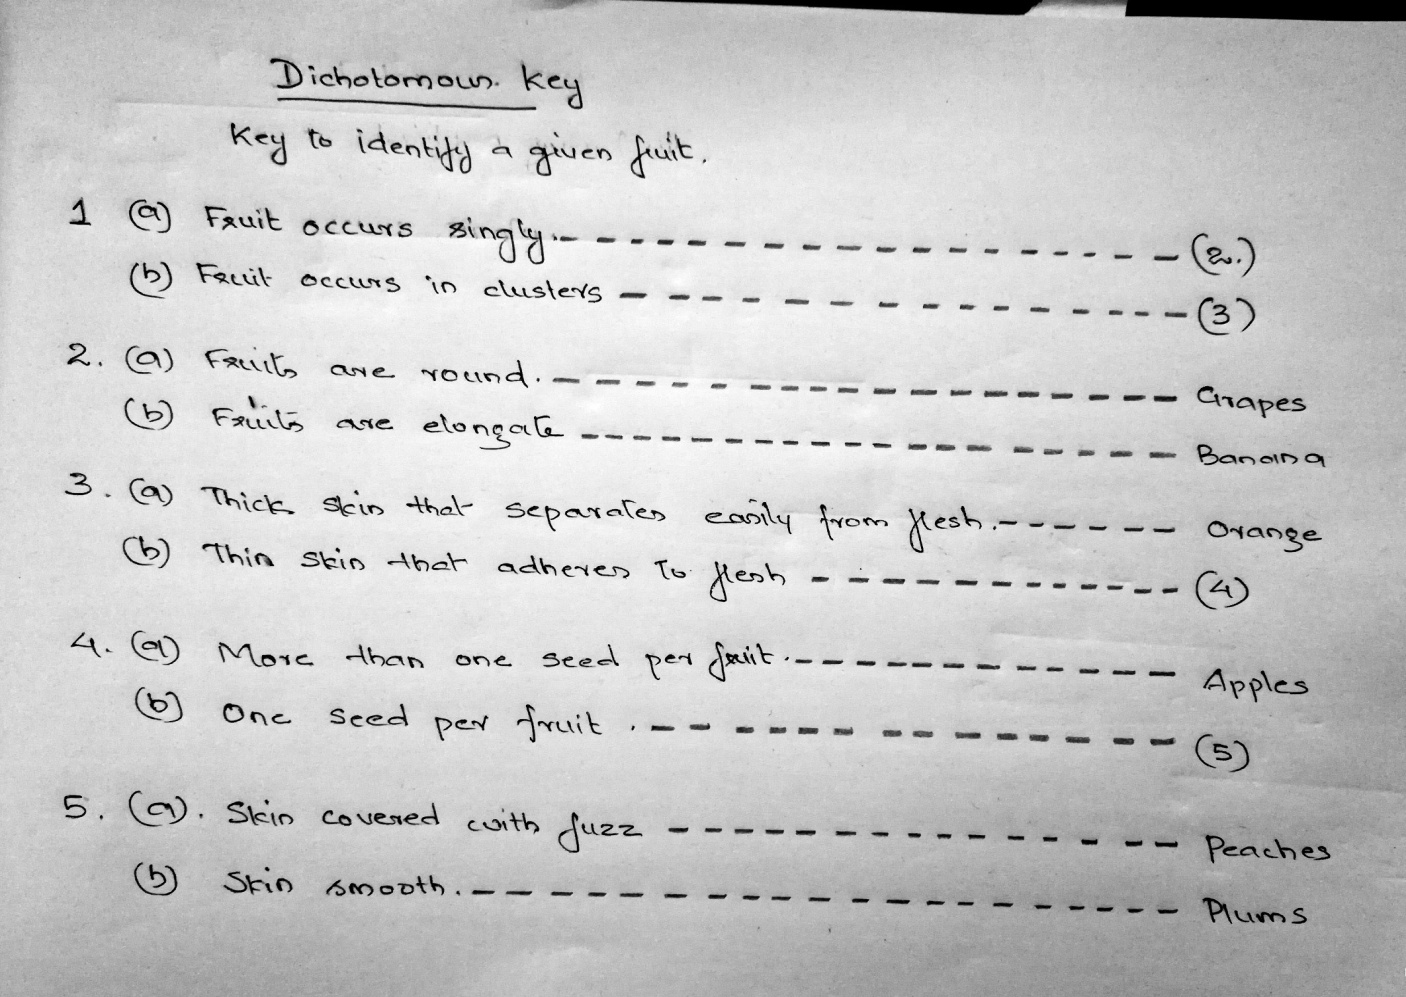 Dichotomous Key
Key to identify a given fruit.
1 (a) Fruit occurs singly. - - - - - - - - - - - - - - - - - - (2.)
(b) Fruit occurs in clusters - - - - - - - - - - - - - - (3)
2. (a) Fruits are round. - - - - - - - - - - - - - - - - - - Grapes
(b) Fruits are elongate - - - - - - - - - - - - - - - - - - Banana
3. (a) Thick skin that separates easily from flesh. - - - - - - Orange
(b) Thin skin that adheres to flesh - - - - - - - - - - - (4)
4. (a) More than one seed per fruit. - - - - - - - - - - - - Apples
(b) One seed per fruit. - - - - - - - - - - - - - - - (5)
5. (a). Skin covered with fuzz - - - - - - - - - - - - - - Peaches
(b) Skin smooth. - - - - - - - - - - - - - - - - - - Plums